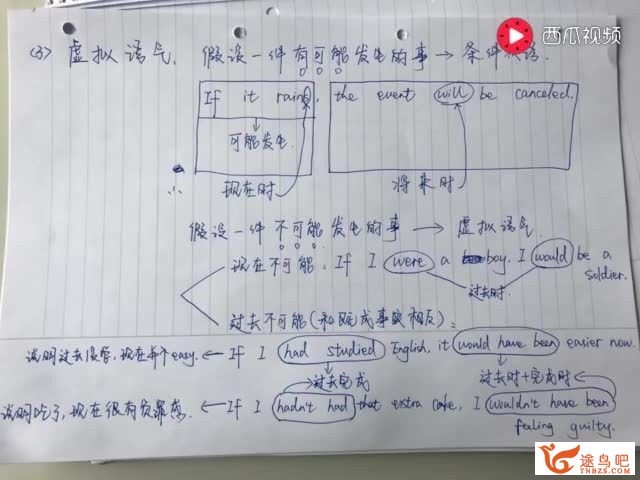 西瓜视频
(3) 虚拟语气. 假设一件有可能发生的事 → 条件状语.
If it rains, the event will be canceled.
可能发生
现在时 将来时
假设一件不可能发生的事 → 虚拟语气
现在不可能: If I were a boy, I would be a soldier.
过去时.
过去不可能(和既成事实相反):
说明过去没学,现在并不easy. ← If I had studied English, it would have been easier now.
过去完成 过去时+完成时
说明吃了,现在很有负罪感. ← If I hadn't had that extra cake, I wouldn't have been feeling guilty.
途鸟吧
TNBZS.COM